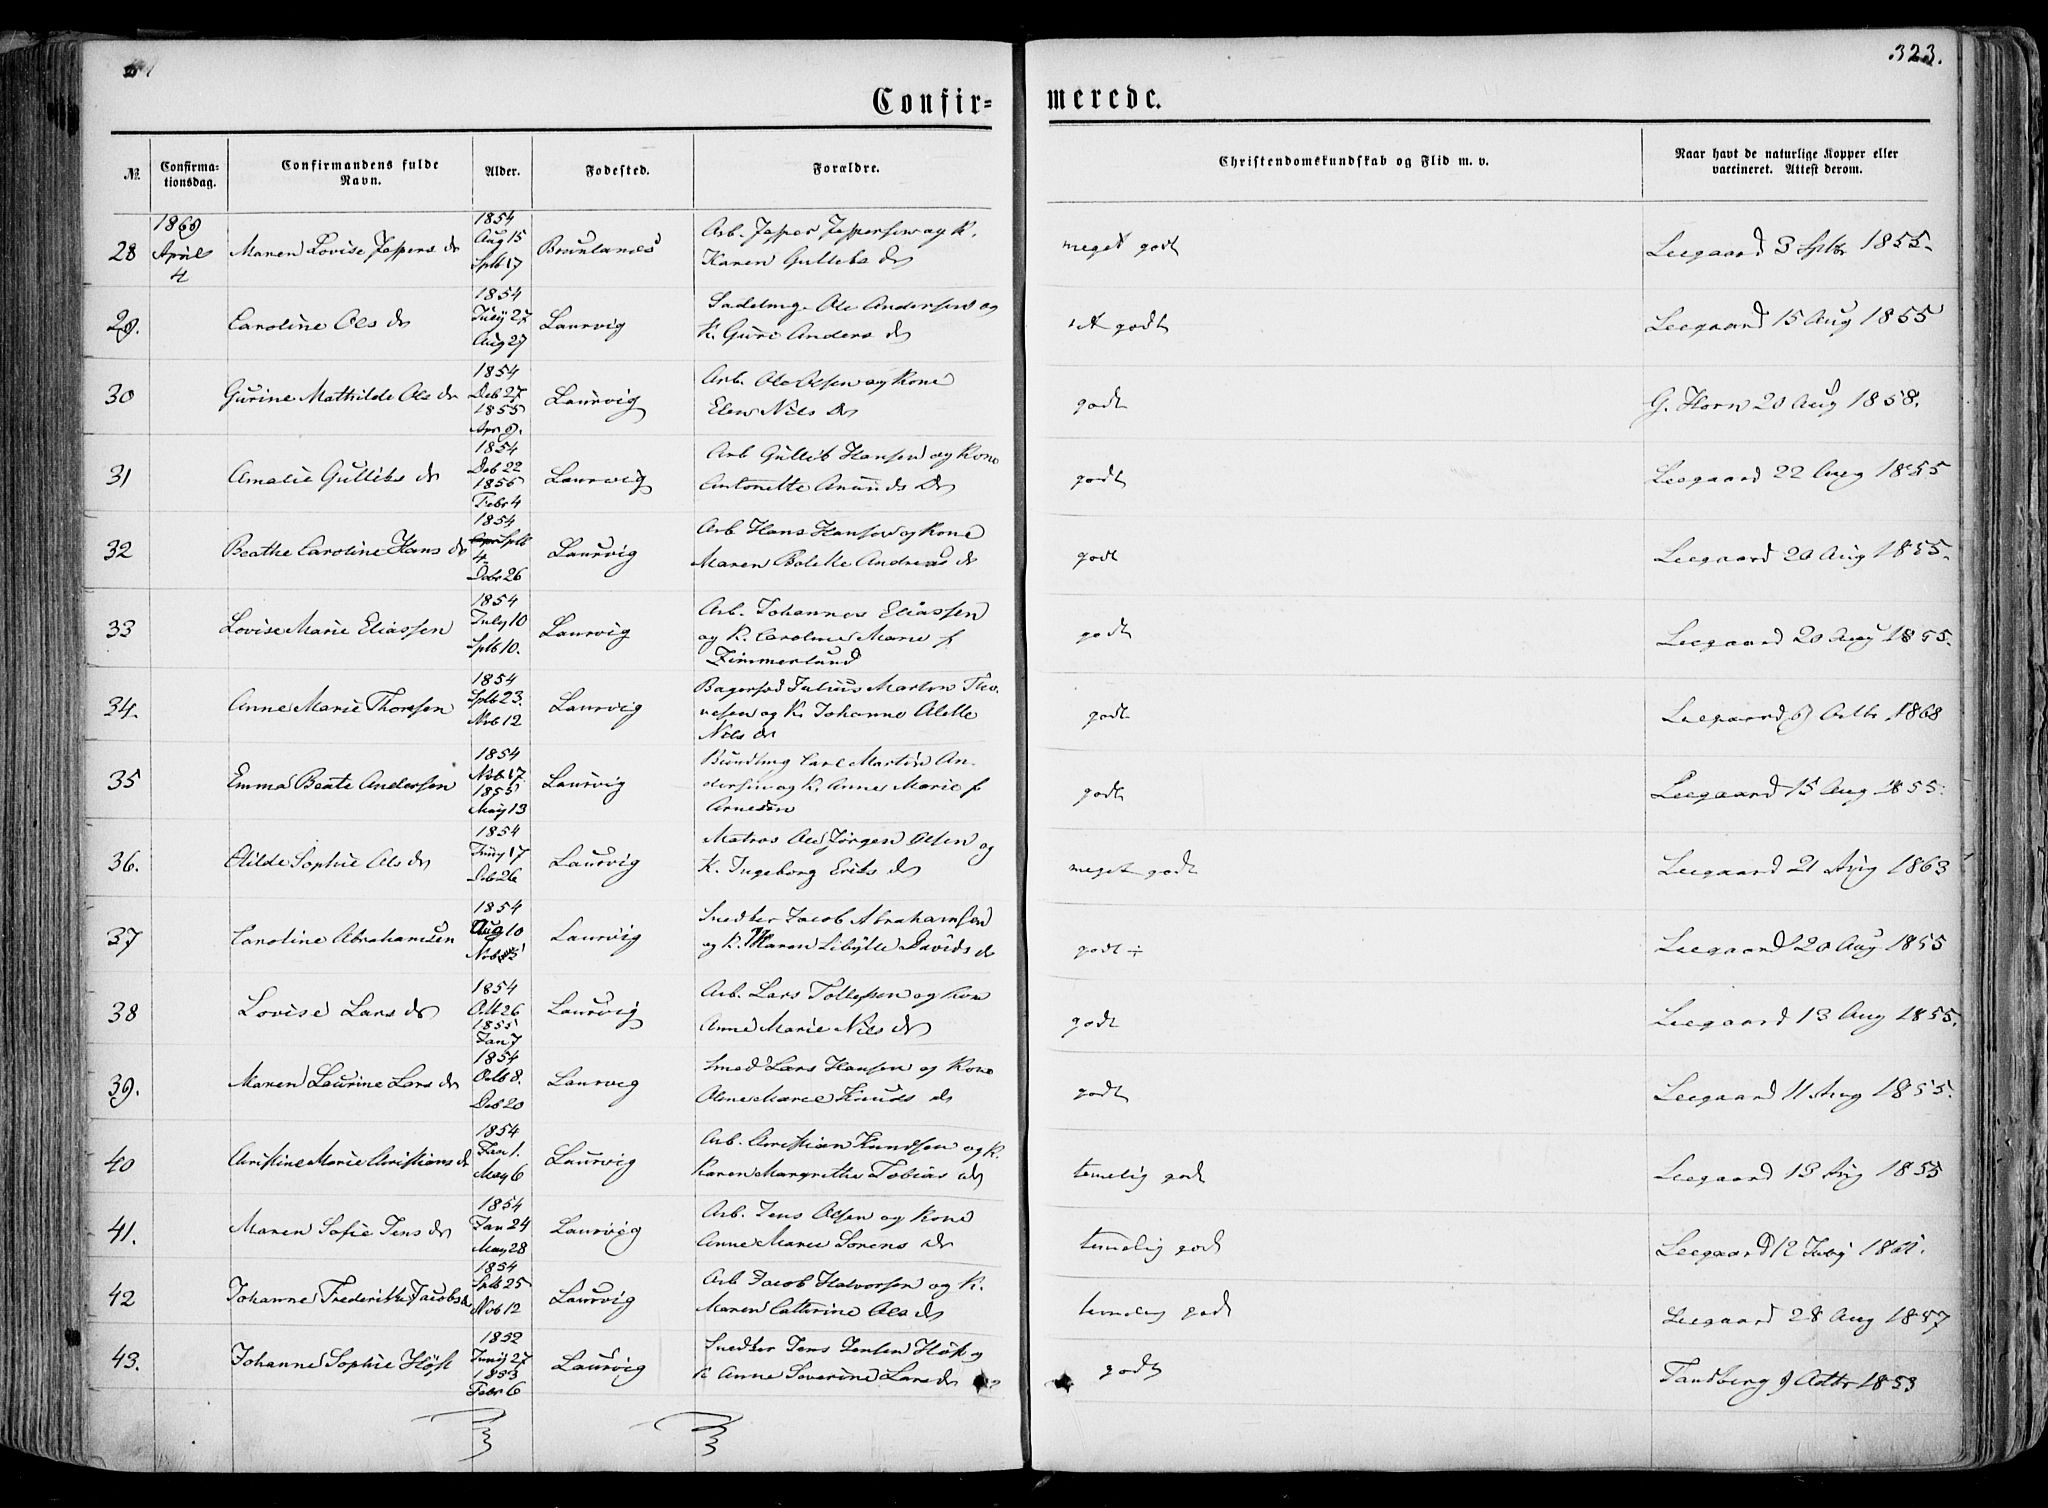 323.
Confir=
merede.
№
Confirma-
tionsdag.
Confirmandens fulde
Navn.
Alder.
Fødested.
Forældre.
Christendomskundskab og Flid m. v.
Naar havt de naturlige Kopper eller
vaccineret. Attest derom.
28
1869
April
4
Maren Lovise Jespers dr
1854
Aug 15
Sptb 17
Brunlanes
Arb. Jesper Jespersen og K.
Karen Gulleks dr
meget godt
Leegaard 3 Sptbr 1855.
29.
Caroline Ols dr
1854
July 27
Aug 27
Laurvig
Sadelmg. Ole Andersen og
K. Guri Anders dr
godt
Leegaard 15 Aug 1855
30
Gurine Mathilde Ols dr
1854
Deb 27
1855
Apr 9.
Laurvig
Arb. Ole Olsen og Kone
Elen Nils dr
godt
G. Horn 20 Aug 1858.
31
Amalie Gulliks dr
1854
Deb 22
1855
Febr 4
Laurvig
Arb Gullik Hansen og Kone
Antonette Amunds dr
godt
Leegaard 22 Aug 1855
32
Beathe Caroline Hans dr
1854
Sptb
4
Debr 26
Laurvig
Arb Hans Hansen og Kone
Maren Bolette Andreas dr
godt
Leegaard 20 Aug 1855.
33
Lovise Marie Eliassen
1854
July 10
Sptb 10.
Laurvig
Arb. Johannes Eliassen
og K. Caroline Marie f
Zimmerlund
godt
Leegaard 20 Aug 1855.
34.
Anne Marie Thoresen
1854
Sptb 23.
Nvb 12
Laurvig
Bagersvd Julius Martin Tho-
resen og K. Johanne Alette
Nils dr
godt
Leegaard 6 Octbr 1868
35
Emma Beate Andersen
1854
Nvb 17.
1855
May 13
Laurvig
Bundtmg Carl Martin An-
dersen og K. Anne Marie f
Arnesen
godt
Leegaard 15 Aug 1855.
36.
Olilde Sophie Ols dr
1854
Juny 17
Deb 26
Laurvig
Matros Ole Jørgen Olsen og
K. Ingeborg Eriks dr
meget godt
Leegaard 21 Aug 1863
37
Caroline Abrahamsen
1854
Aug 10
Laurvig
Snedker Jacob Abrahamsen
og K. Maren Sibylle Davids dr
godt ÷
Leegaard 20 Aug 1855
38
Lovise Lars dr
1854
Octb 26
1855
Jan 7
Laurvig
Arb. Lars Tollefsen og Kone
Anne Marie Nils dr
godt
Leegaard 13 Aug 1855.
39.
Maren Laurine Lars dr
1854
Octb 8.
Deb 20
Laurvig
Smed Lars Hansen og Kone
Olene Marie Knuds dr
godt
Leegaard 11 Aug 1855.
40
Christine Marie Christians dr
1854
Jan 1.
May 6
Laurvig
Arb. Christian Knudsen og K.
Karen Margrethe Tobias dr
temelig godt
Leegaard 13 Aug 1855
41.
Maren Sofie Jens dr
1854
Jan 24
May 28
Laurvig
Arb. Jens Olsen og Kone
Anne Marie Sørens dr
temelig godt
Leegaard 12 July
42
Johanne Frederikke Jacobs dr
1854
Sptb 25
Nvb 12
Laurvig
Arb Jacob Halvorsen og K.
Maren Cathrine Ols dr
temelig godt
Leegaard 28 Aug 1857
43.
Johanne Sophie Høst
1852
Juny 27
1853
Febr 6
Laurvig
Snedker Jens Jensen Høst og
K Anne Severine Lars dr
godt
Tandberg 9 Octbr 1853